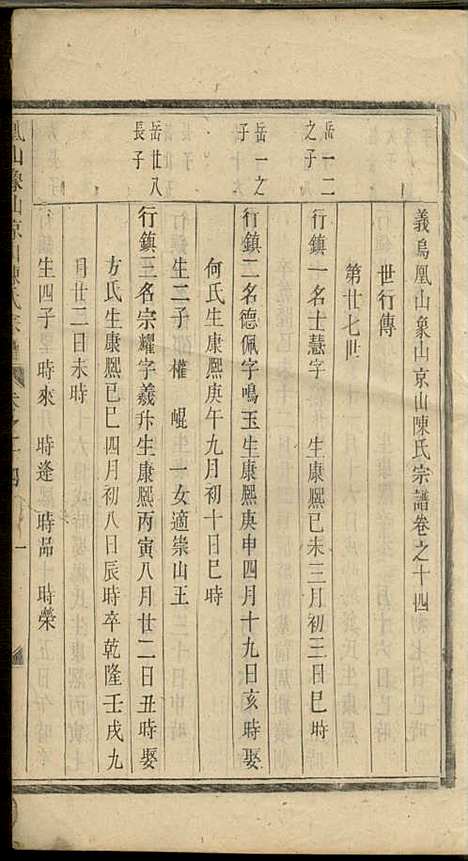 義烏凰山象山京山陳氏宗譜卷之十四
世行傳
第廿七世
岳一二之子
行鎮一名士慧字 生康熙己未三月初三日巳時
岳一之子
行鎮二名德佩字鳴玉生康熙庚申四月十九日亥時娶
何氏生康熙庚午九月初十日巳時
生二子 權 崐 一女適崇山王
岳廿八長子
行鎮三名宗耀字羲升生康熙丙寅八月廿二日丑時娶
方氏生康熙己巳四月初八日辰時卒乾隆壬戌九
月廿二日未時
生四子 時來 時逢 時 時榮
凰山象山京山陳氏宗譜 卷之十四 一